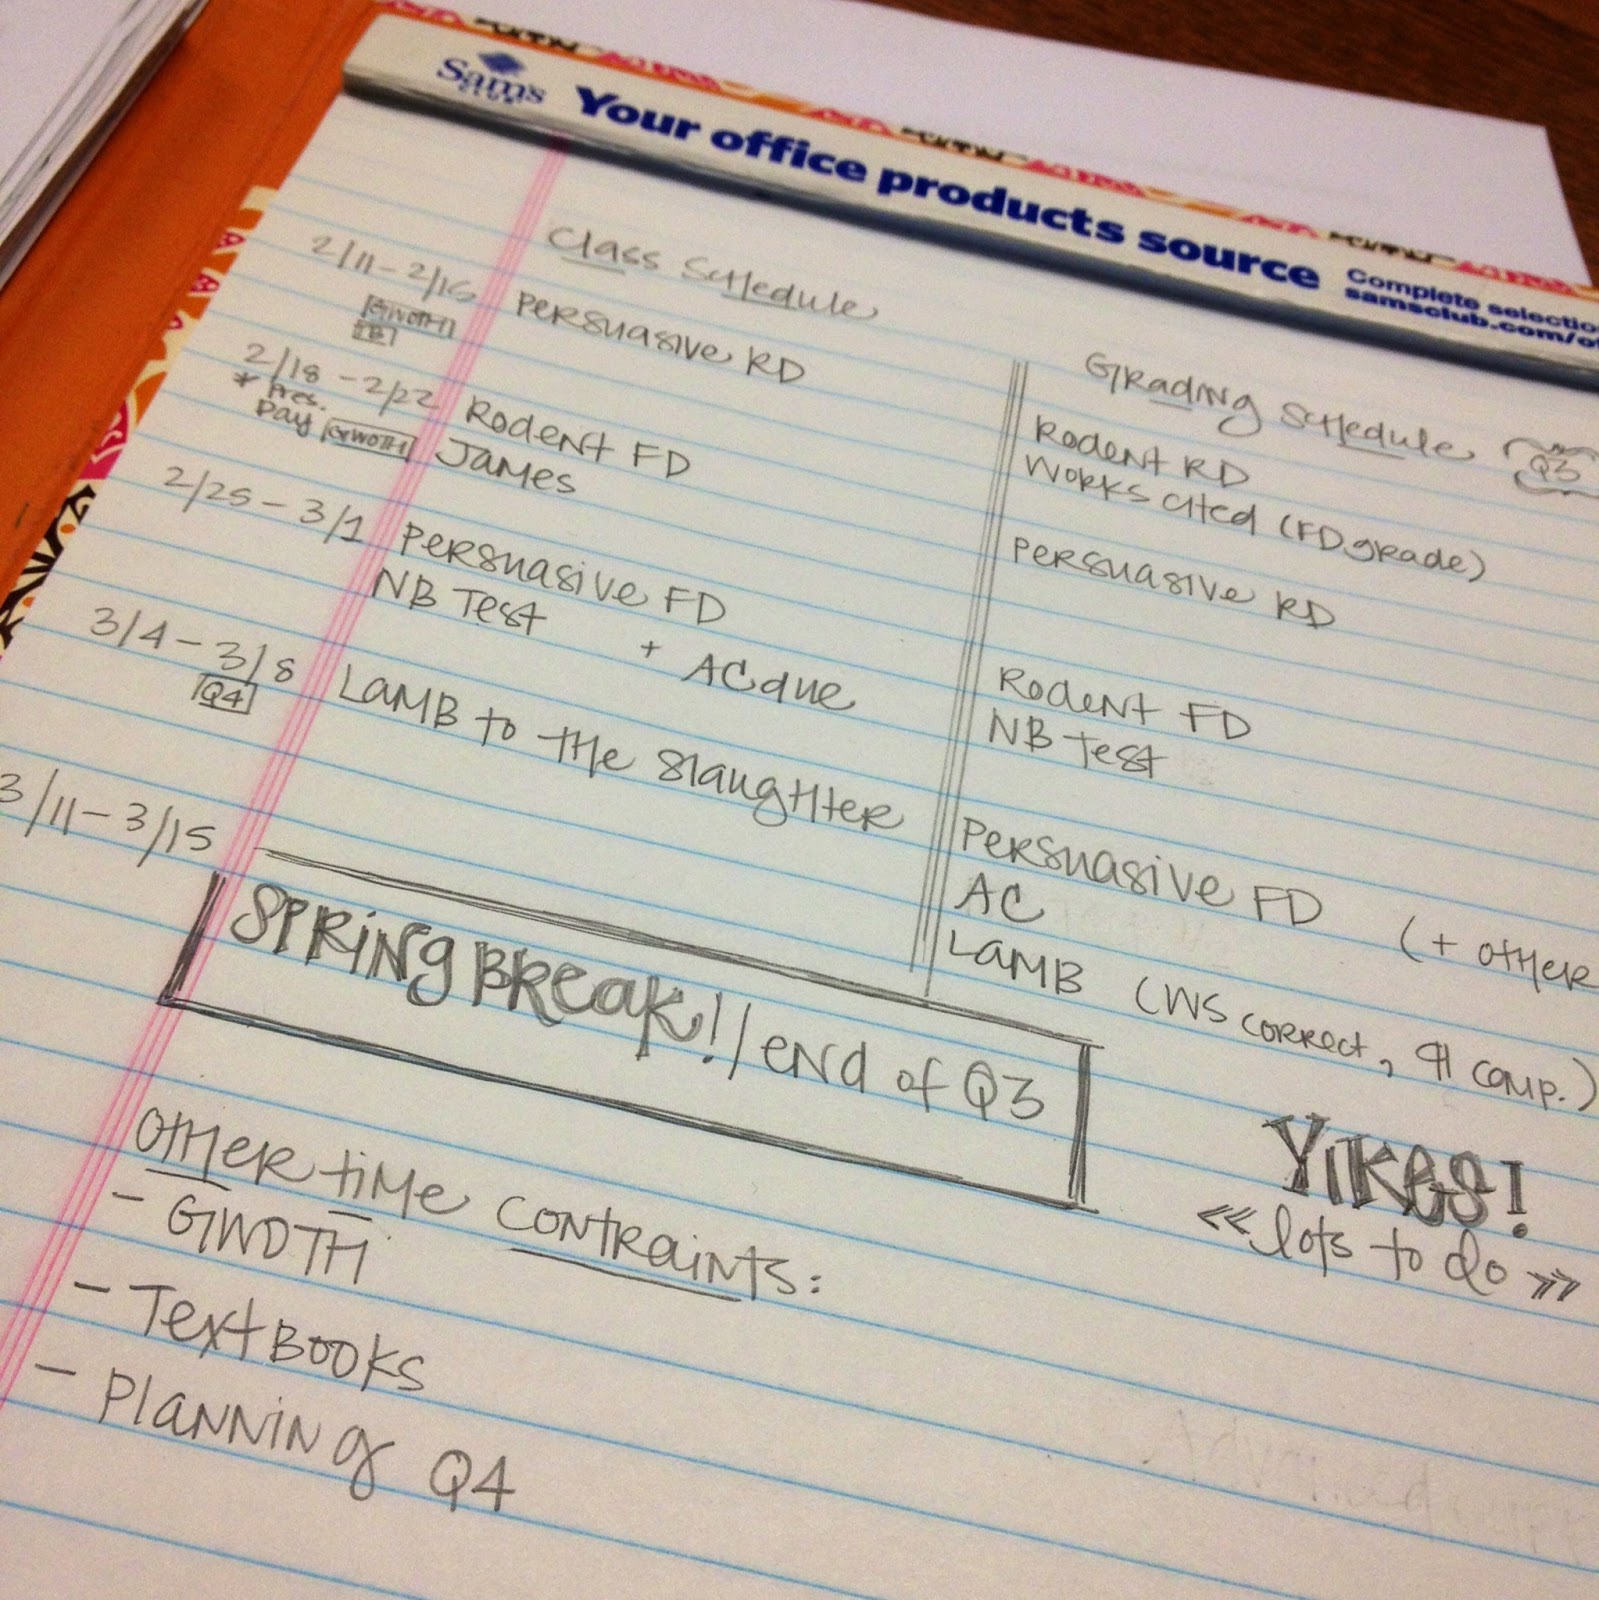 Sam's
CLUB
Your office products source
Complete selectio
samsclub.com/of
Class Schedule
Grading Schedule Q3
2/11-2/15 Persuasive RD
GWOTH
B
Rodent RD
Works cited (FD grade)
2/18-2/22 Rodent FD
* Pres. James
Day GWOTH
Persuasive RD
2/25-3/1 Persuasive FD
NB Test + AC due
Rodent FD
NB Test
3/4-3/8 Lamb to the slaughter
Q4
Persuasive FD (+ other
AC
Lamb (WS correct, ¶ comp.)
3/11-3/15
Spring Break! / end of Q3
Yikes!
<< lots to do >>
Other time contraints:
- GWOTH
- Textbooks
- Planning Q4